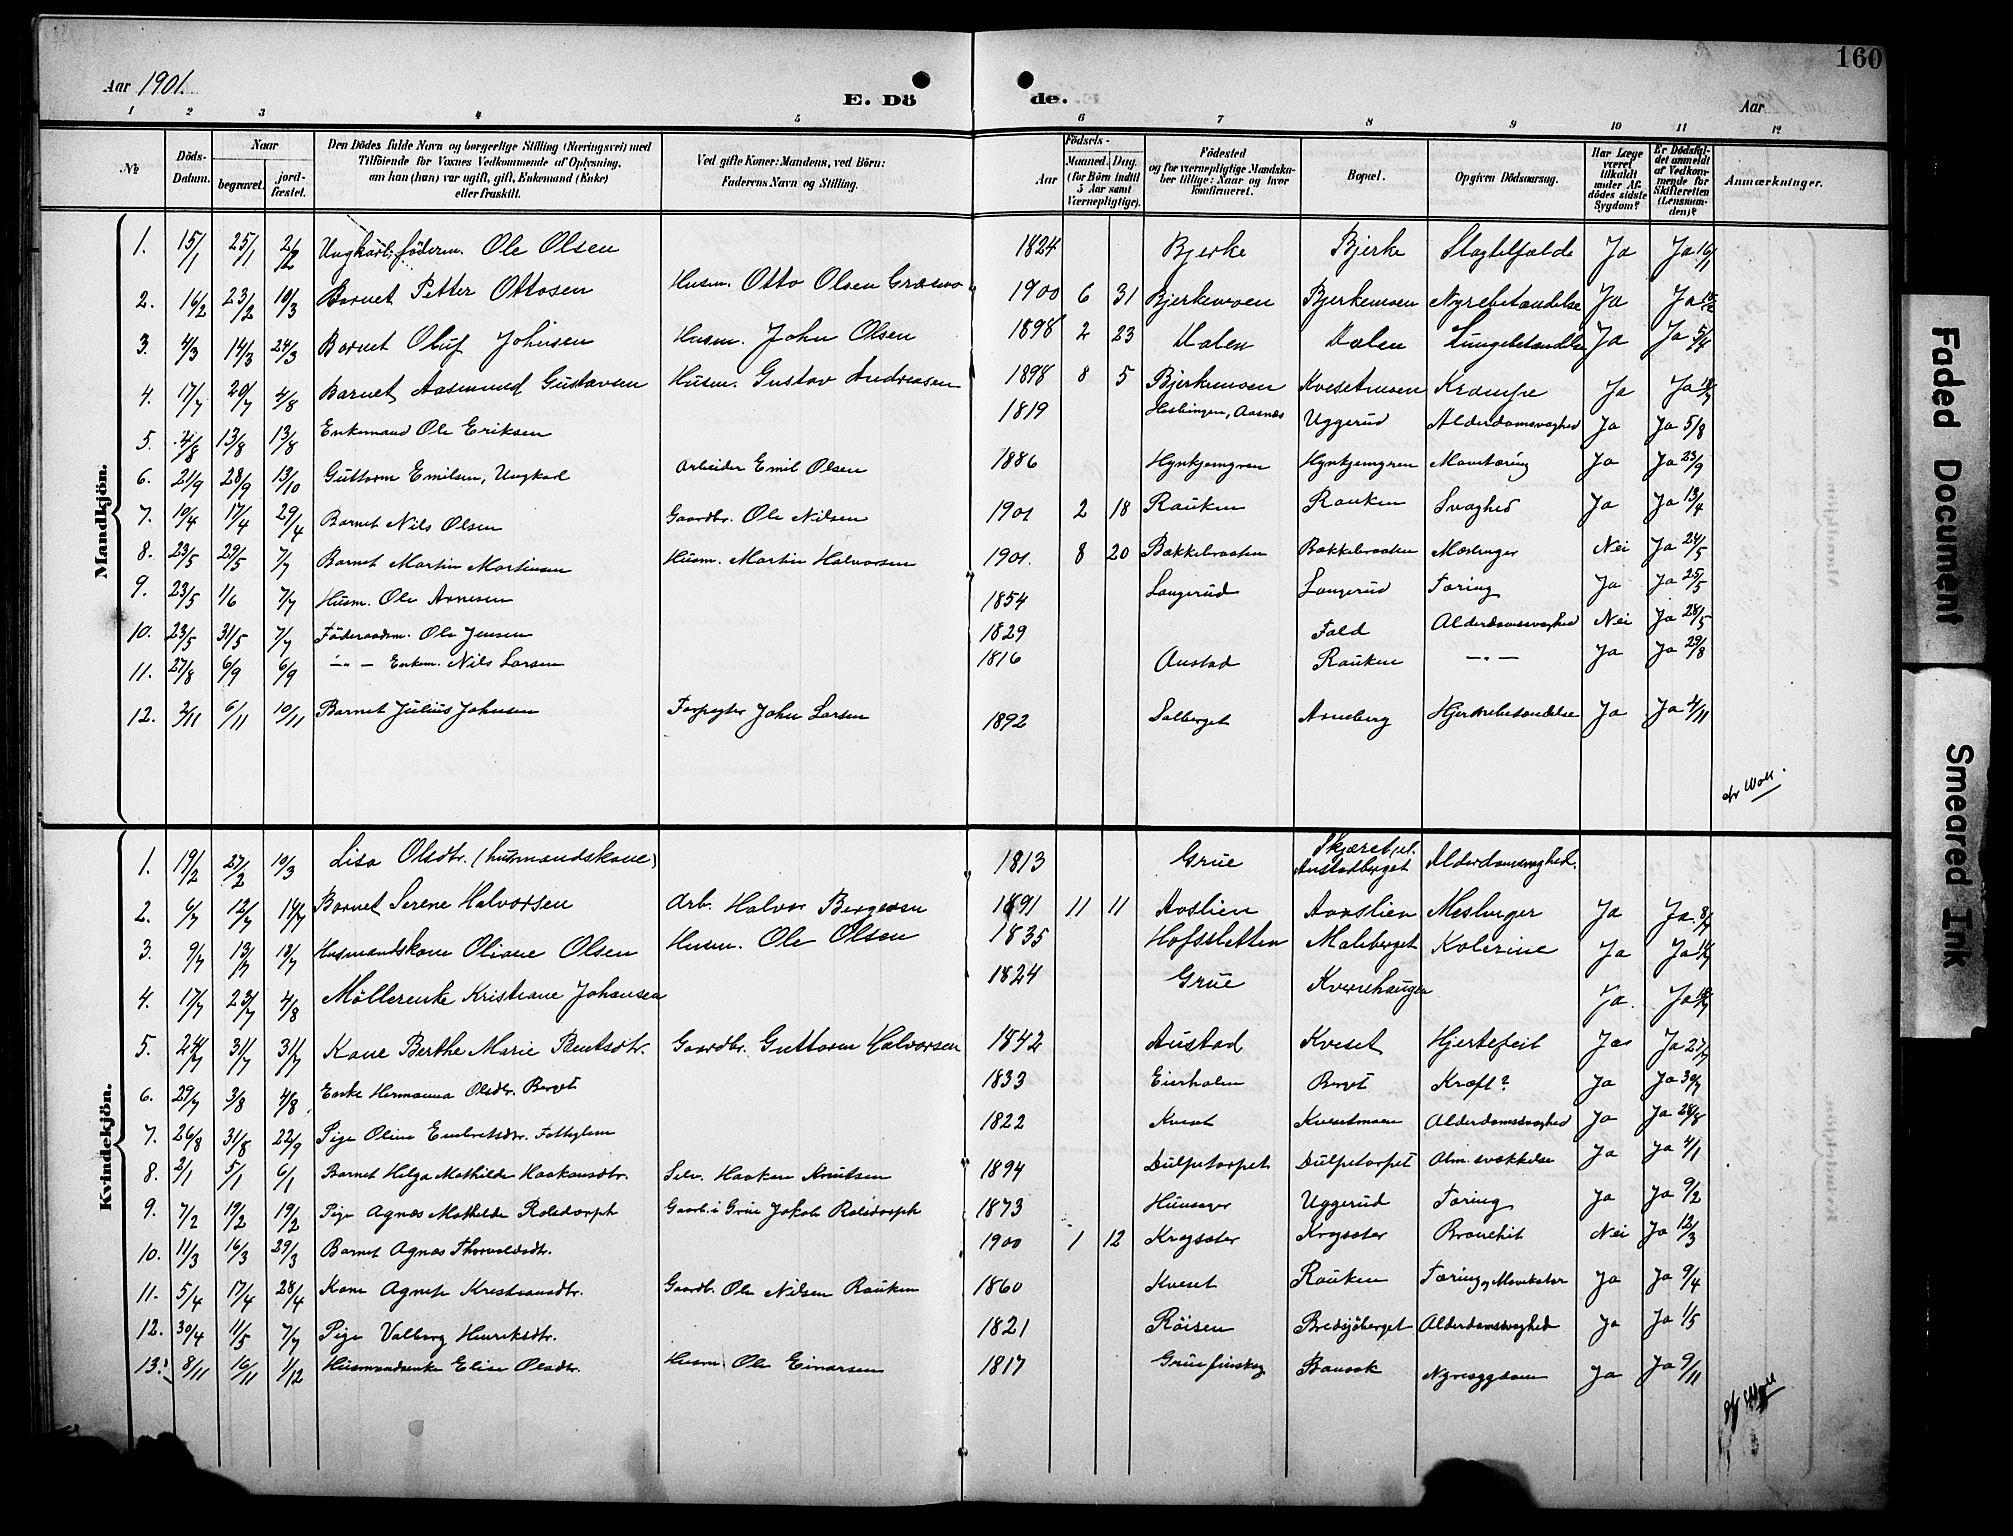 160
Aar 1901.
E. Dö de.
Aar
1 2 3 4 5 6 7 8 9 10 11 12
№ Döds-Datum. Naar begravet. jord-fæstet. Den Dödes fulde Navn og borgerlige Stilling (Næringsvei) med Tilföiende for Voxnes Vedkommende af Oplysning, om han (hun) var ugift, gift, Enkemand (Enke) eller fraskilt. Ved gifte Koner: Mandens, ved Börn: Faderens Navn og Stilling. Födsels- Aar Maaned. Dag. (for Börn indtil 5 Aar samt Værnepligtige). Födested og for værnepligtige Mandskaber tillige: Naar og hvor konfirmeret. Bopæl. Opgiven Dödsaarsag. Har Læge været tilkaldt under Afdödes sidste Sygdom? Er Dödsfaldet anmeldt af Vedkommende for Skifteretten (Lensmanden)? Anmærkninger.
Mandkjön.
1. 15/1 25/1 2/2 Ungkarl, föderm. Ole Olsen 1824 Bjerke Bjerke Slagtilfælde Ja Ja 16/1
2. 16/2 23/2 10/3 Barnet Petter Ottosen Husm. Otto Olsen 1900 6 31 Bjerkemoen Bjerkemoen Nyrebetændelse Ja Ja
3. 4/3 14/3 24/3 Barnet Oluf Johnsen Husm. John Olsen 1898 2 23 Dalen Dalen Lungebetændelse Ja Ja 5/4
4. 17/7 20/7 4/8 Barnet Aasmund Gustavsen Husm. Gustav Andreasen 1898 8 5 Bjerkemoen Kvesetmoen Krampe Ja Ja
5. 4/8 13/8 13/8 Enkemand Ole Eriksen 1819 Aasnes Uggerud Alderdomsvaghed Ja Ja 5/8
6. 21/9 28/9 13/10 Guttorm Emilsen, Ungkarl Arbeider Emil Olsen 1886 Ja Ja 23/9
7. 10/4 17/4 29/4 Barnet Nils Olsen Gaardbr. Ole Nilsen 1901 2 18 Rauken Rauken Svaghed Ja Ja 13/4
8. 23/5 29/5 7/7 Barnet Martin Martinsen Husm. Martin Halvorsen 1901. 8 20 Bakkebraaten Bakkebraaten Mæslinger Nei Ja 24/5
9. 23/5 1/6 7/7 Husm. Ole Arnesen 1854 Langerud Langerud Tæring Ja Ja 25/5
10. 23/5 31/5 7/7 Föderaadsm. Ole Jensen 1829 Fald Alderdomssvaghed Nei Ja 28/5
11. 27/8 6/9 6/9 —„— Enkem. Nils Larsen 1816 Austad Rauken —„— Ja Ja 29/8
12. 2/11 6/11 10/11 Barnet Julius Johnsen Forpagter John Larsen 1892 Solberget Arneberg Hjernebetændelse Ja Ja 4/11
Kvindekjön.
1. 19/2 27/2 10/3 Lisa Olsdtr. (husmandskone) 1813 Grue Skjæret, Austadberget Alderdomsvaghed.
2. 6/7 12/7 14/7 Barnet Serene Halvorsen Arb. Halvor Bergersen 1891 11 11 Aaslien Aaslien Meslinger Ja Ja 8/7
3. 9/7 13/7 13/7 Husmandskone Oliane Olsen Husm. Ole Olsen 1835 Hofsletten Maleberget Kolerine Ja Ja
4. 17/7 23/7 4/8 Möllerenke Kristiane Johansen 1824 Grue Kvernehaugen Ja. Ja
5. 24/7 31/7 31/7 Kone Berthe Marie Berntsdtr. Gaardbr. Guttorm Halvorsen 1842 Austad Kveset Hjertefeil Ja Ja 27/7
6. 29/7 3/8 4/8 Enke Hermanna Olsdtr. Berget 1833 Eierholen Berget Kræft? Ja Ja 30/7
7. 26/8 31/8 22/9 Pige Oline Embretsdtr. Fattiglem 1822 Kveset Kvesetmoen Alderdomssvaghed Ja Ja 28/8
8. 2/1 5/1 6/1 Barnet Helga Mathilde Haakonsdtr. Selv. Haakon Knutsen 1894 Dulpetorpet Dulpetorpet Alm. svækkelse Ja Ja 4/1
9. 7/2 19/2 19/2 Pige Agnes Mathilde Rolsdorph Gaardb. i Grue Jakob Rolsdorph 1873 Uggerud Tæring Ja Ja 9/2
10. 11/3 16/3 29/3 Barnet Agnes Thorvaldsdtr. 1900 1 12 Krogsæter Krogsæter Bronchit Nei Ja 12/3
11. 5/4 17/4 28/4 Kone Agnete Kristiansdtr. Gaardb. Ole Nilsen Rauken 1860 Kveset Rauken Ja Ja 9/4
12. 30/4 11/5 7/7 Pige Valborg Henriksdtr. 1821 Röisen Bredsjöberget Alderdomssvaghed Ja Ja 1/5
13. 8/11 16/11 1/12 Husmandsenke Elise Olsdtr. Husm. Ole Einarsen 1817 Grue finskog Bansok Nyresygdom Ja Ja 9/11
Faded Document
Smeared Ink